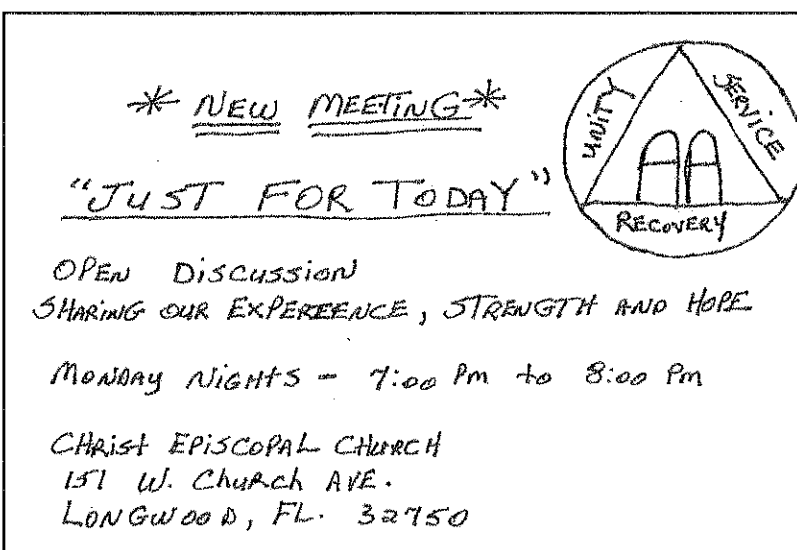 * NEW MEETING *
"JUST FOR TODAY"
UNITY
SERVICE
AA
RECOVERY
OPEN DISCUSSION
SHARING OUR EXPEREENCE, STRENGTH AND HOPE
MONDAY NIGHTS - 7:00 PM to 8:00 PM
CHRIST EPISCOPAL CHURCH
151 W. CHURCH AVE.
LONGWOOD, FL. 32750